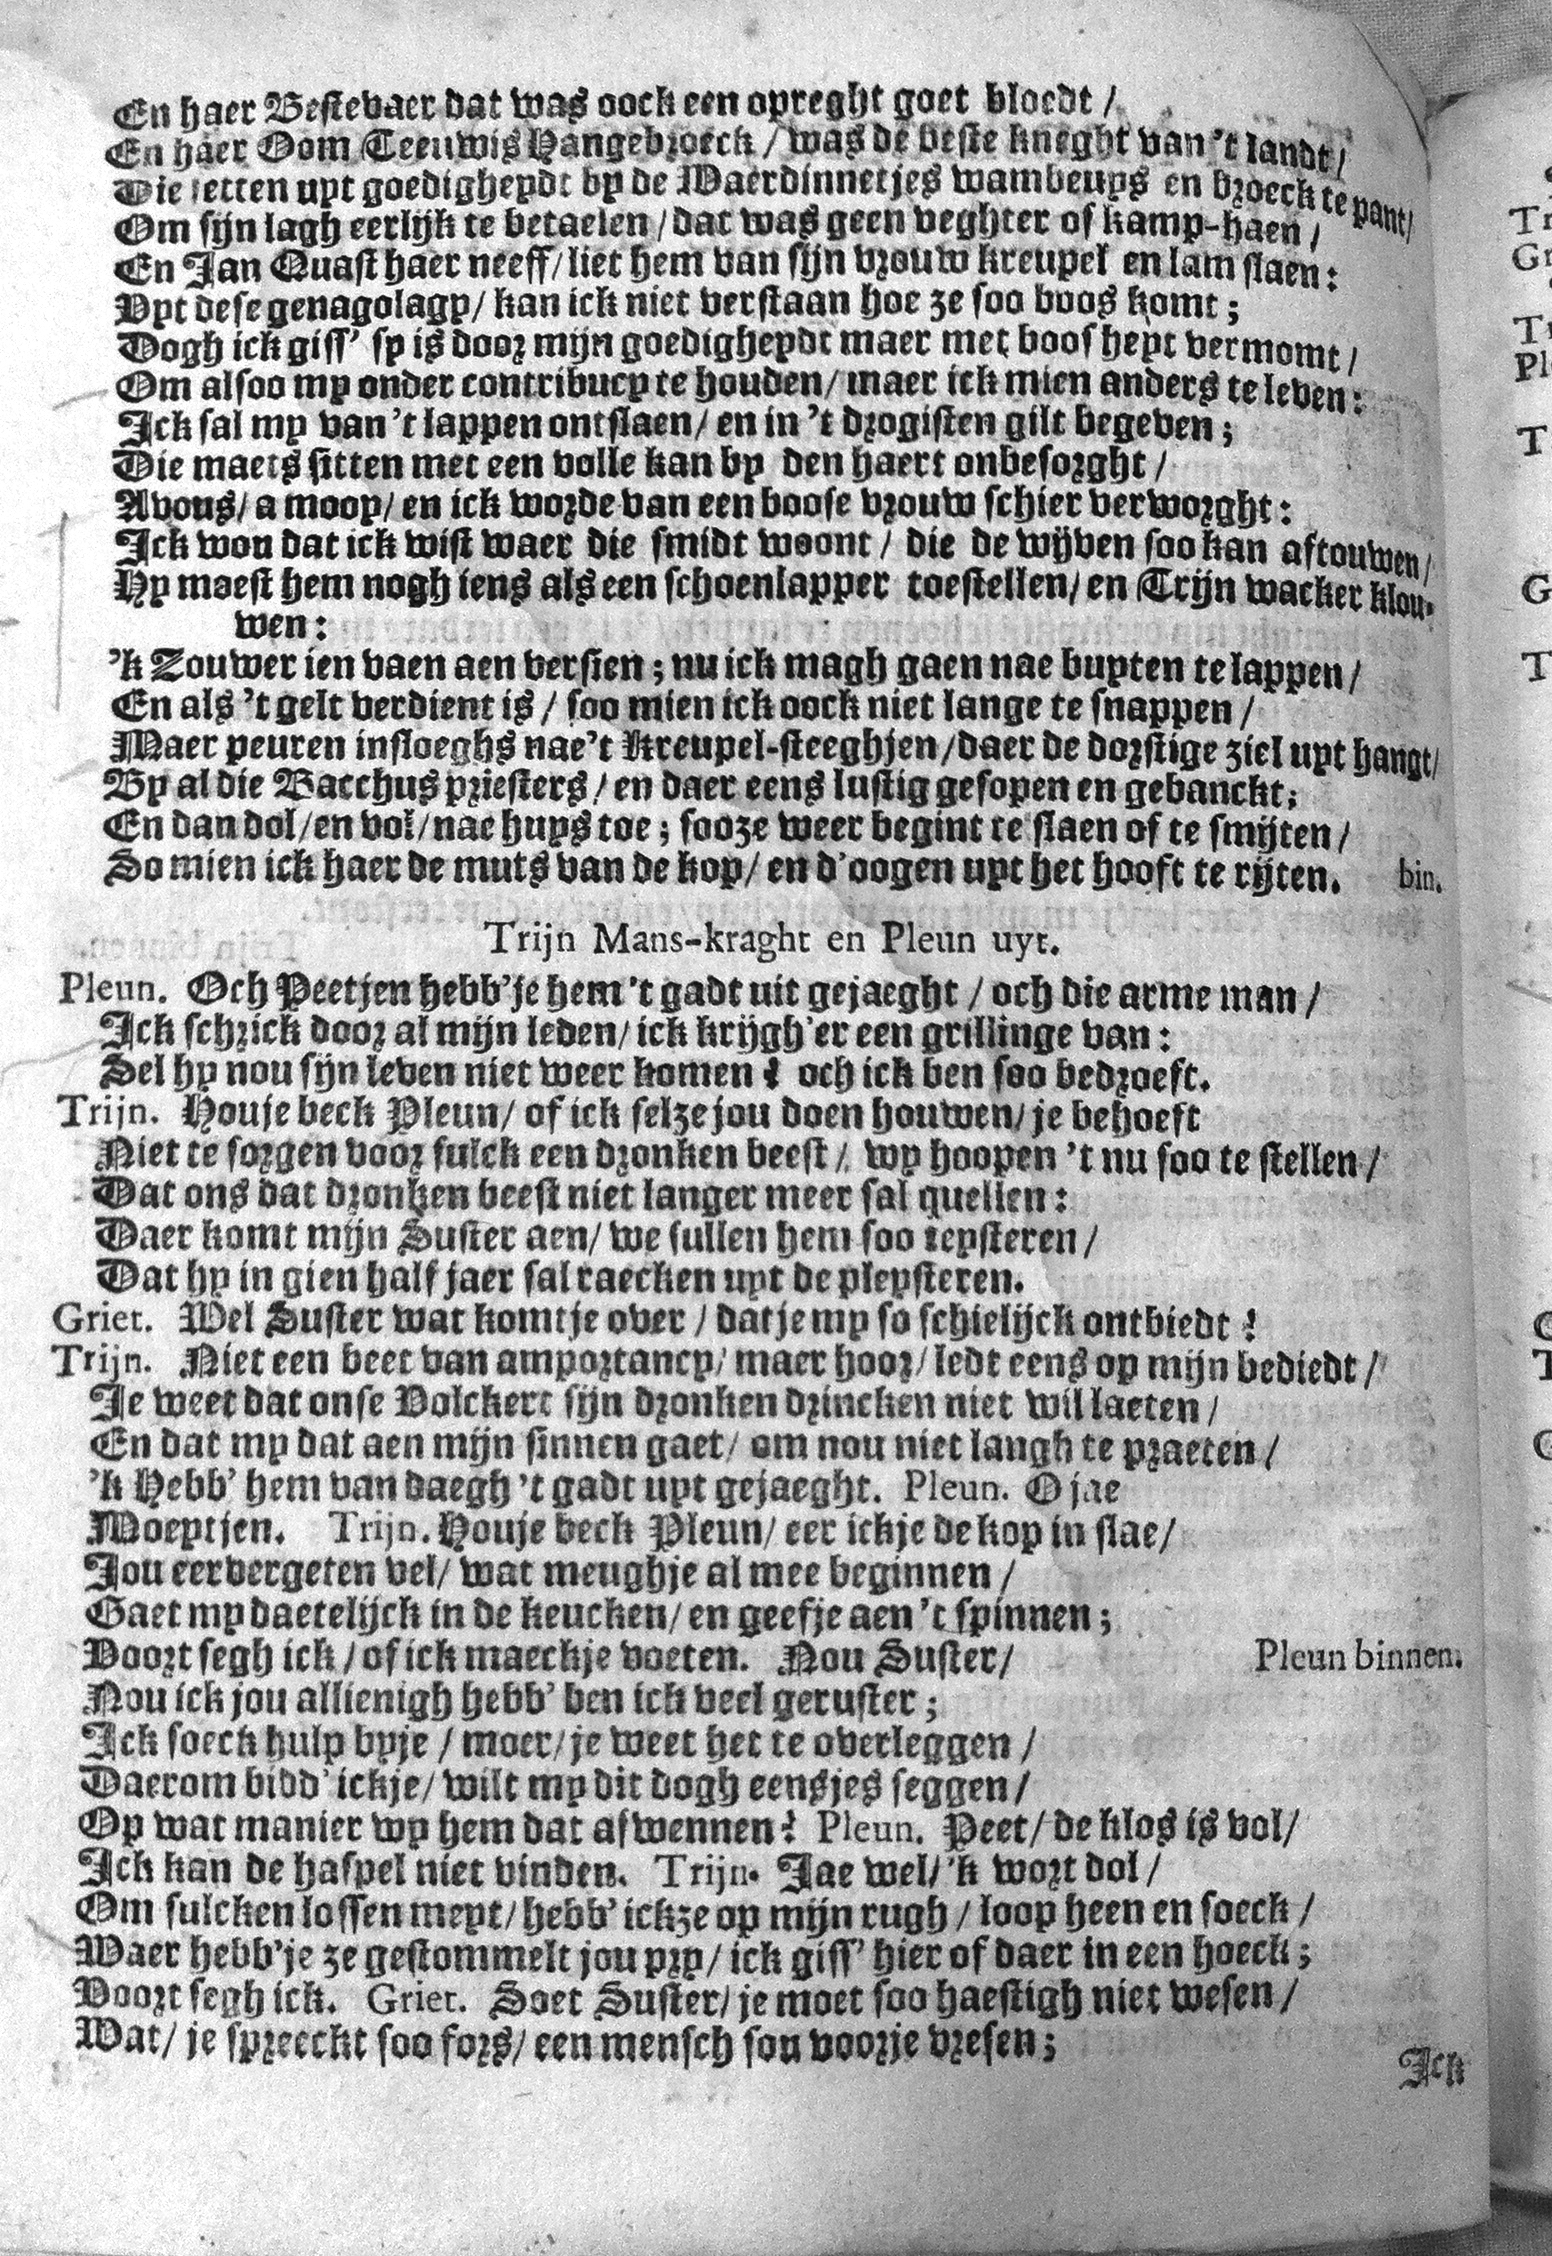 En haer Bestevaer dat was oock een opreght goet bloedt /
En haer Oom Teeuwis Hangebroeck / was de beste kneght van 't landt /
Die setten uyt goedigheydt by de Waerdinnetjes wambeuys en broeck te pant /
Om sijn lagh eerlijk te betaelen / dat was geen veghter of kamp-haen /
En Jan Quast haer neeff / liet hem van sijn vrouw kreupel en lam slaen :
Uyt dese genagolagy / kan ick niet verstaan hoe ze soo boos komt ;
Dogh ick giss' sy is door mijn goedigheydt maer met boosheyt vermomt /
Om alsoo my onder contribucy te houden / maer ick mien anders te leven :
Ick sal my van 't lappen ontslaen / en in 't drogisten gilt begeven ;
Die maets sitten met een volle kan by den haert onbesorght /
Avous / a mooy / en ick worde van een boose vrouw schier verworght :
Ick wou dat ick wist waer die smidt woont / die de wijven soo kan aftouwen /
Hy moest hem nogh iens als een schoenlapper toestellen / en Trijn wacker klou-
wen :
'k Zouwer ien vaen aen versien ; nu ick magh gaen nae buyten te lappen /
En als 't gelt verdient is / soo mien ick oock niet lange te snappen /
Maer peuren insloeghs nae't Kreupel-steeghjen / daer de dorstige ziel uyt hangt /
By al die Bacchus priesters / en daer eens lustig gesopen en gebanckt ;
En dan dol / en vol / nae huys toe ; sooze weer begint te slaen of te smijten /
So mien ick haer de muts van de kop / en d'oogen uyt het hooft te rijten. bin.
Trijn Mans-kraght en Pleun uyt.
Pleun. Och Peetjen hebb'je hem 't gadt uit gejaeght / och die arme man /
Ick schrick door al mijn leden / ick krijgh'er een grillinge van :
Sel hy nou sijn leven niet weer komen ? och ick ben soo bedroeft.
Trijn. Houje beck Pleun / of ick selze jou doen houwen / je behoeft
Niet te sorgen voor sulck een dronken beest / wy hoopen 't nu soo te stellen /
Dat ons dat dronken beest niet langer meer sal quellen :
Daer komt mijn Suster aen / we sullen hem soo teysteren /
Dat hy in gien half jaer sal raecken uyt de pleysteren.
Griet. Wel Suster wat komtje over / datje my so schielijck ontbiedt ?
Trijn. Niet een beet van amportancy / maer hoor / ledt eens op mijn bediedt /
Je weet dat onse Volckert sijn dronken drincken niet wil laeten /
En dat my dat aen mijn sinnen gaet / om nou niet langh te praeten /
'k Hebb' hem van daegh 't gadt uyt gejaeght. Pleun. O jae
Moeytjen. Trijn. Houje beck Pleun / eer ickje de kop in slae /
Jou eervergeten vel / wat meughje al mee beginnen /
Gaet my daetelijck in de keucken / en geefje aen 't spinnen ;
Voort segh ick / of ick maeckje voeten. Nou Suster / Pleun binnen.
Nou ick jou allienigh hebb' ben ick veel geruster ;
Ick soeck hulp byje / moer / je weet het te overleggen /
Daerom bidd' ickje / wilt my dit dogh eensjes seggen /
Op wat manier wy hem dat afwennen ? Pleun. Peet / de klos is vol /
Ick kan de haspel niet vinden. Trijn. Jae wel / 'k wort dol /
Om sulcken lossen meyt / hebb' ickze op mijn rugh / loop heen en soeck /
Waer hebb'je ze gestommelt jou pry / ick giss' hier of daer in een hoeck ;
Voort segh ick. Griet. Soet Suster / je moet soo haestigh niet wesen /
Wat / je spreeckt soo fors / een mensch sou voorje vresen ;
Ick